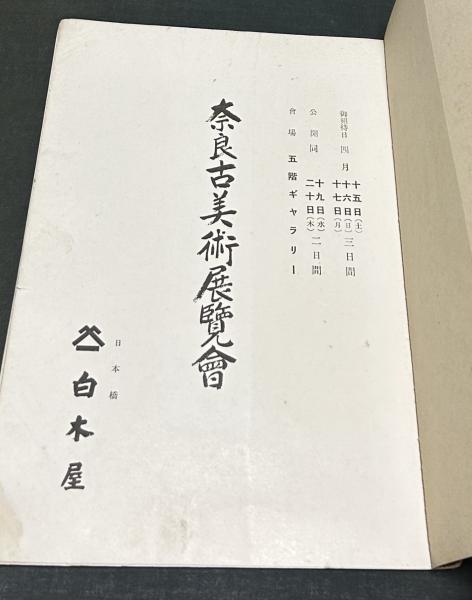 御招待日 四月 十五日(土) 十六日(日) 十七日(月) 三日間
公開同 十九日(水) 二十日(木) 二日間
會場 五階ギャラリー
奈良古美術展覽會
日本橋
白木屋